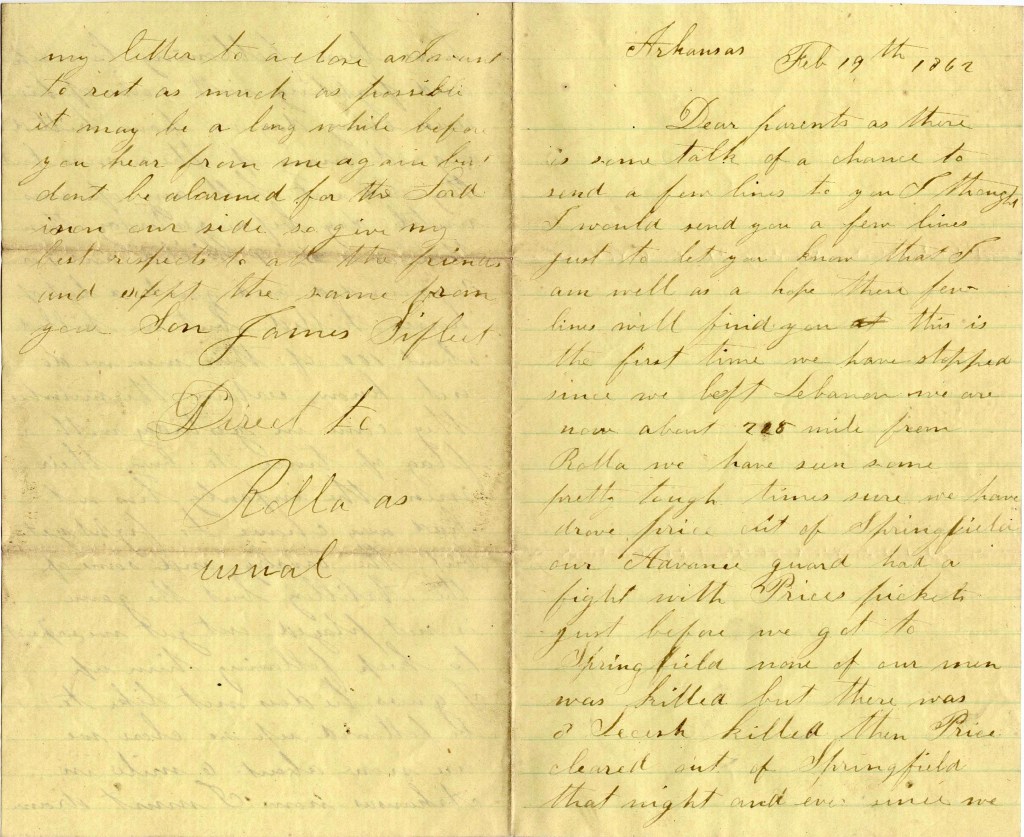 my letter to a close as I want
to rest as much as possible
it may be a long while before
you hear from me again but
dont be alarmed for the Lord
is on our side so give my
best respects to all the friends
and exept the same from
your Son James
Direct to
Rolla as
usual
Arkansas Feb 19th 1862
Dear parents as there
is some talk of a chance to
send a few lines to you I thought
I would send you a few lines
just to let you know that I
am well as a hope these few
lines will find you this is
the first time we have stopped
since we left Lebanon we are
now about mile from
Rolla we have seen some
pretty tough times sure we have
drove price out of Springfield
our Advance guard had a
fight with Prices pickets
just before we got to
Springfield none of our men
was killed but there was
Secesh killed then Price
cleared out of Springfield
that night and ever since we